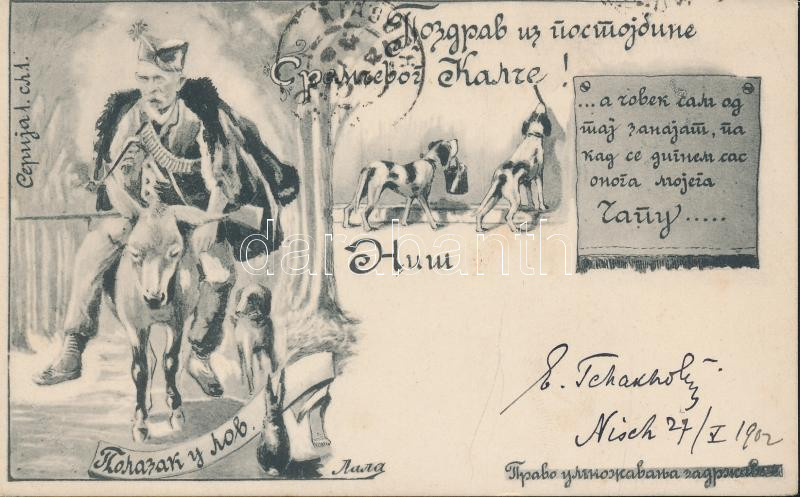 Поздрав из постојбине
Срамчевог Калче!
Серија I. сл.1.
...а човек сам од
тај занајат, па
кад се дигнем сас
онога мојега
Чапу.....
Ниш
darabanth
E.
Nisch 27/V 1902
Полазак у лов.
Лала
Право умножавања задржава